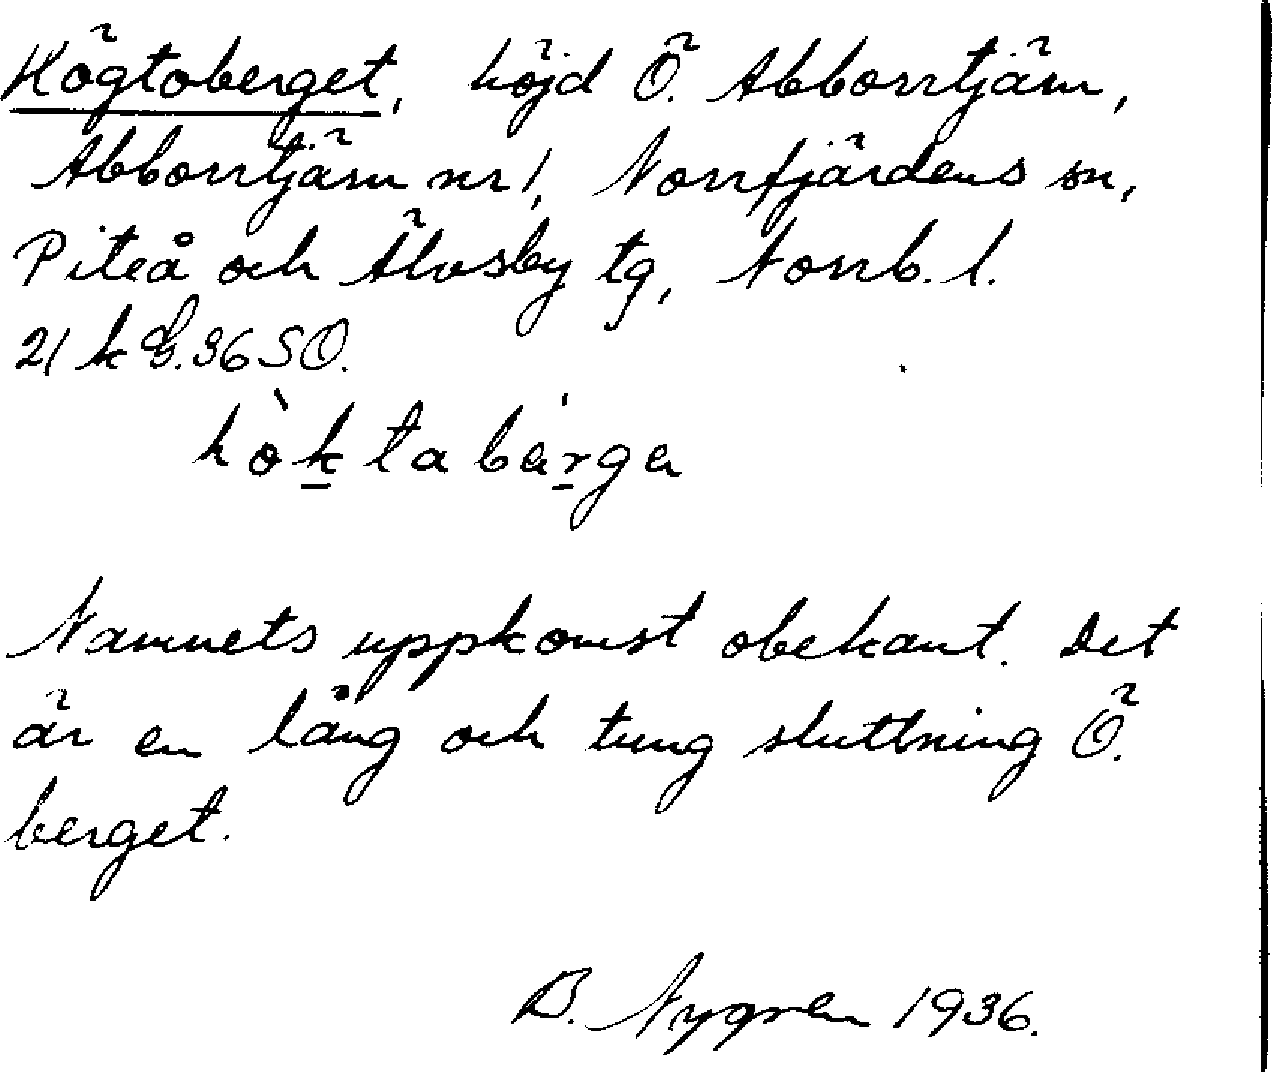 Högtoberget, höjd Ö. Abborrtjärn,
Abborrtjärn nr 1, Norrfjärdens sn,
Piteå och Älvsby tg, Norrb. l.
21 k G.36 SO.
hòktabärga
Namnets uppkomst obekant. Det
är en lång och tung sluttning Ö.
berget.
B. Nygren 1936.